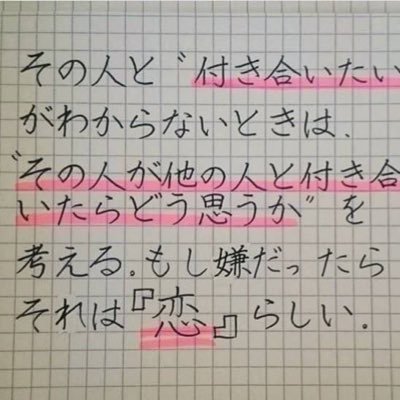 その人と〝付き合いたい
がわからないときは、
〝その人が他の人と付き合
いたらどう思うか〟を
考える。もし嫌だったら
それは『恋』らしい.